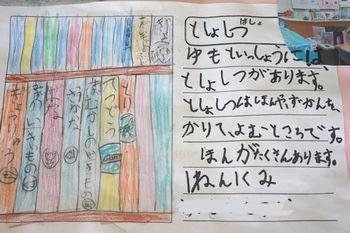 ばしょ
としょしつ
ゆもといっしょうには、
としょしつがあります。
としょしつは、ほんや、ずかんを、
かりて、よむところです。
ほんがたくさんあります。
1ねん1くみ
とり
てつどう
むかしのいきもの
のいきもの
きょうりゅう